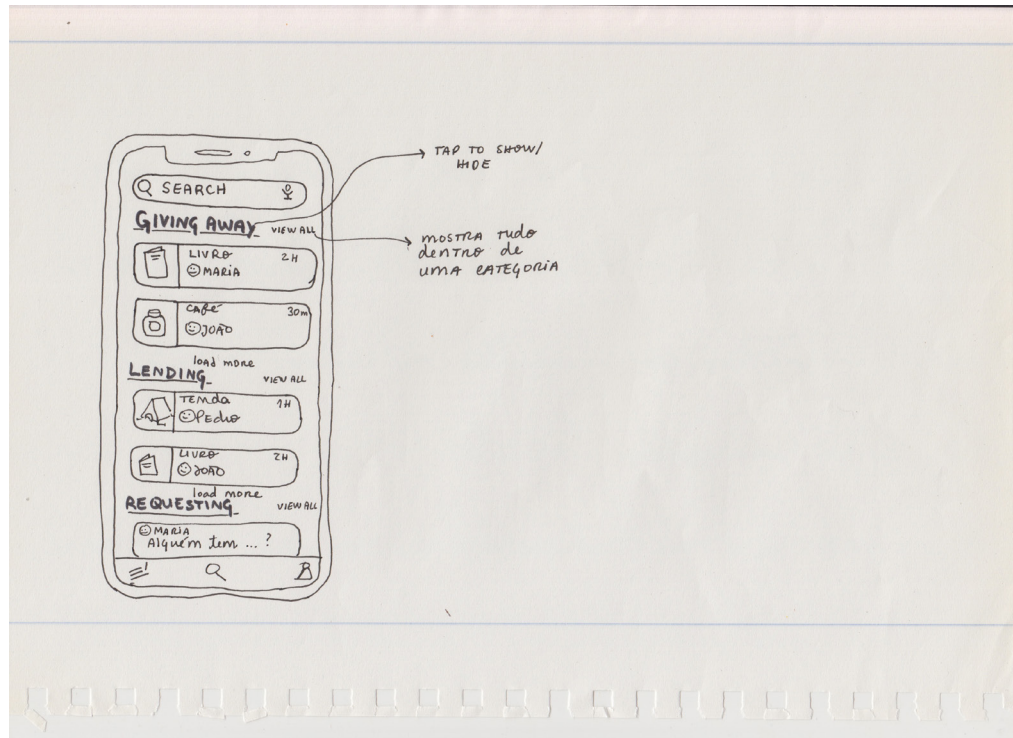 SEARCH
GIVING AWAY
VIEW ALL
LIVRO 2H
MARIA
CAFÉ 30m
JOÃO
load more
LENDING
VIEW ALL
TENDA 1H
PEDRO
LIVRO 2H
JOÃO
load more
REQUESTING
VIEW ALL
MARIA
Alguém tem ... ?
TAP TO SHOW/
HIDE
MOSTRA TUDO
dENTRO de
UMA CATEGORIA